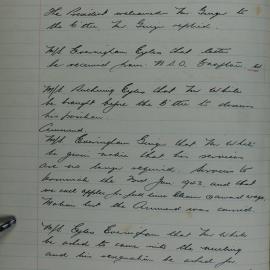 The President welcomed Mr Geige to
the C'ttee. Mr Geige replied.
M/s Evaringham Eyles that letter
be received from N.S.O. Croydon
M/s Eyles that Mr White
be brought before the C'ttee to discuss
his position.
Amend.
M/s Evaringham Geige that Mr White
be given notice that his services
are no longer required. Services to
terminate the 3rd Jan 1952 and that
we will apply for full time man award wage.
Motion lost the Amend was carried.
M/s Eyles Evaringham that Mr White
be asked to come into the meeting
and his resignation be asked for